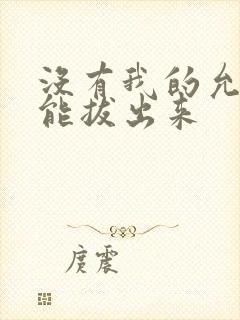 沒有我的允
能拔出来
庹震